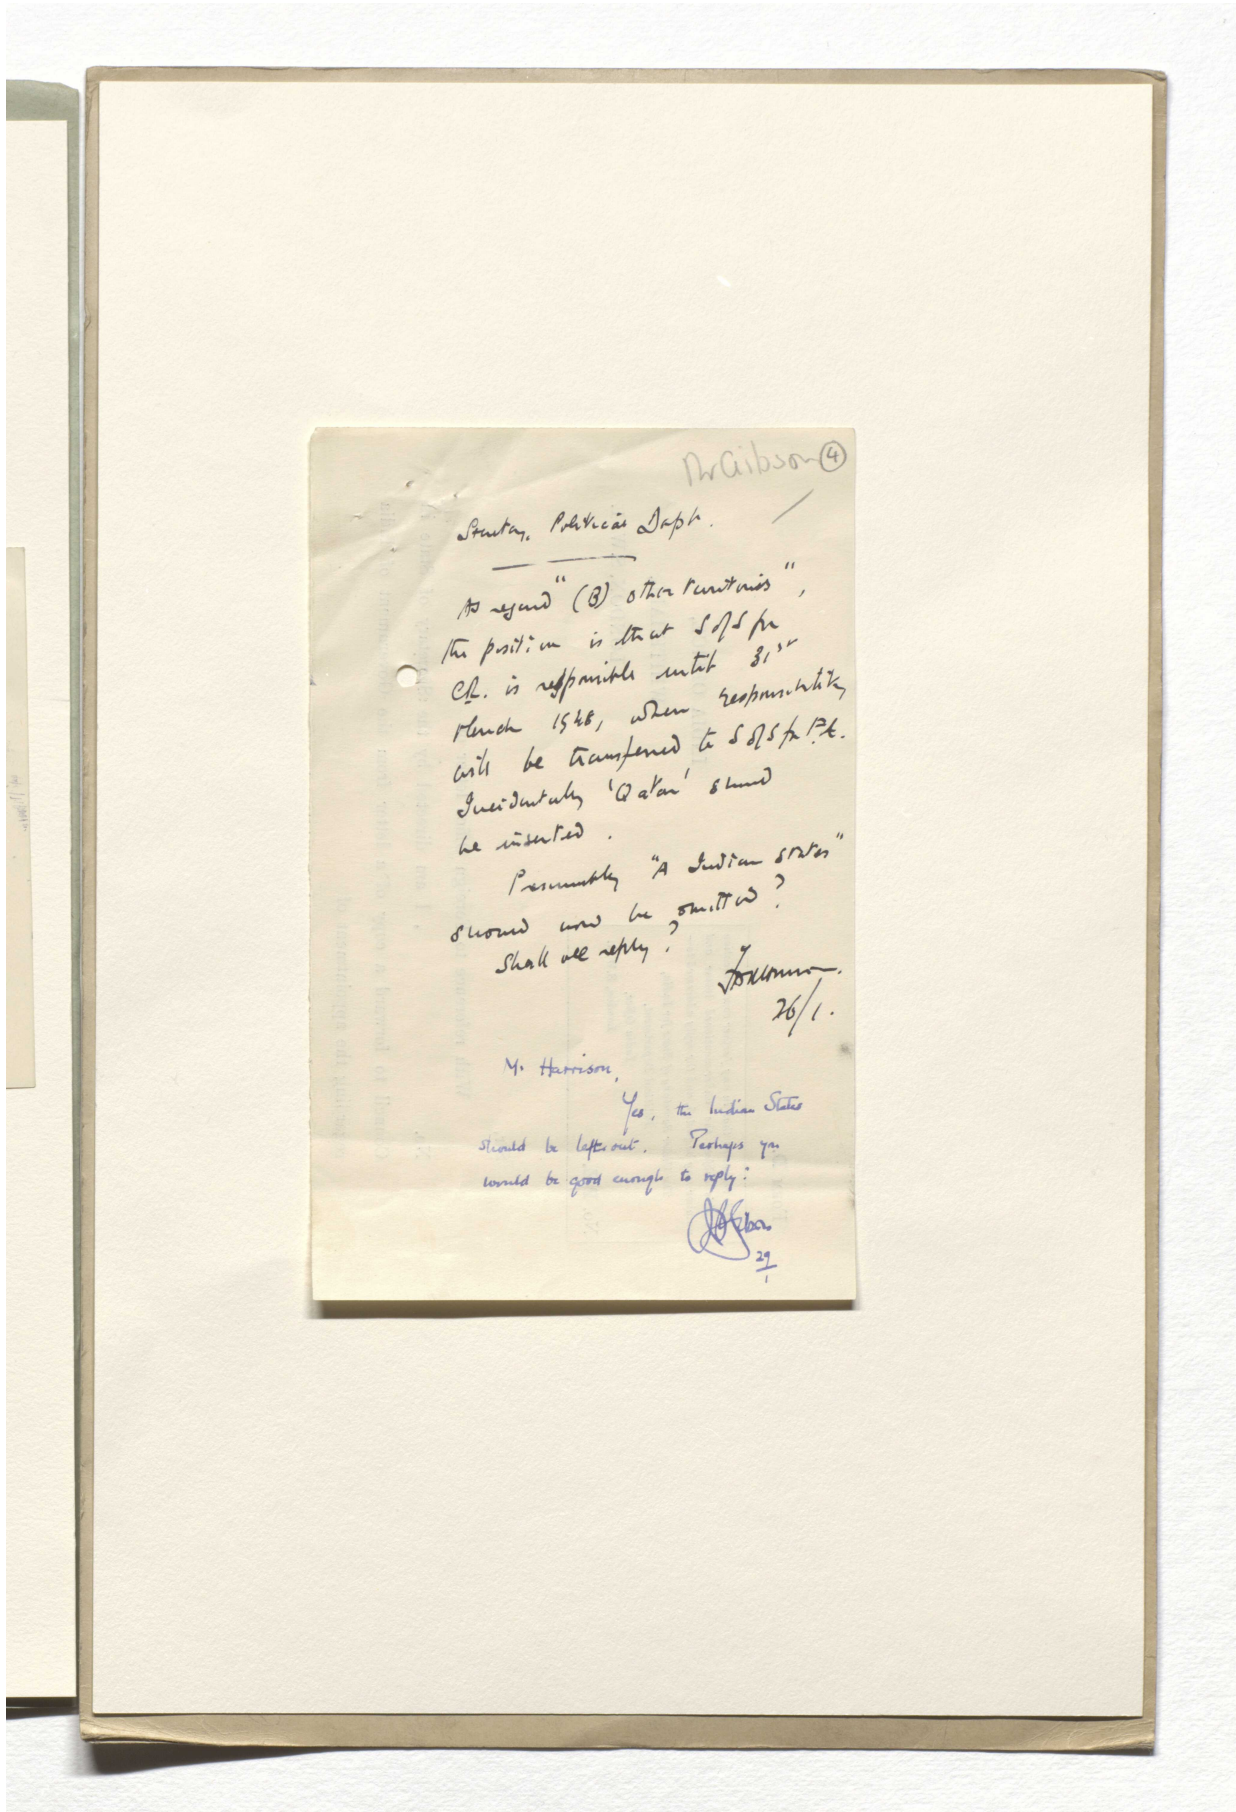 Mr Gibson 4
Secretary, Political Dept.
As regard "(B) other territories",
the position is that S of S for
C.R. is responsible until 31st
March 1948, when responsibility
will be transferred to S of S for F.A.
Incidentally 'Qatar' should
be inserted.
Presumably "A Indian States"
should now be omitted?
Shall we reply?
26/1.
Mr Harrison,
Yes, the Indian States
should be left out. Perhaps you
would be good enough to reply?
29
1